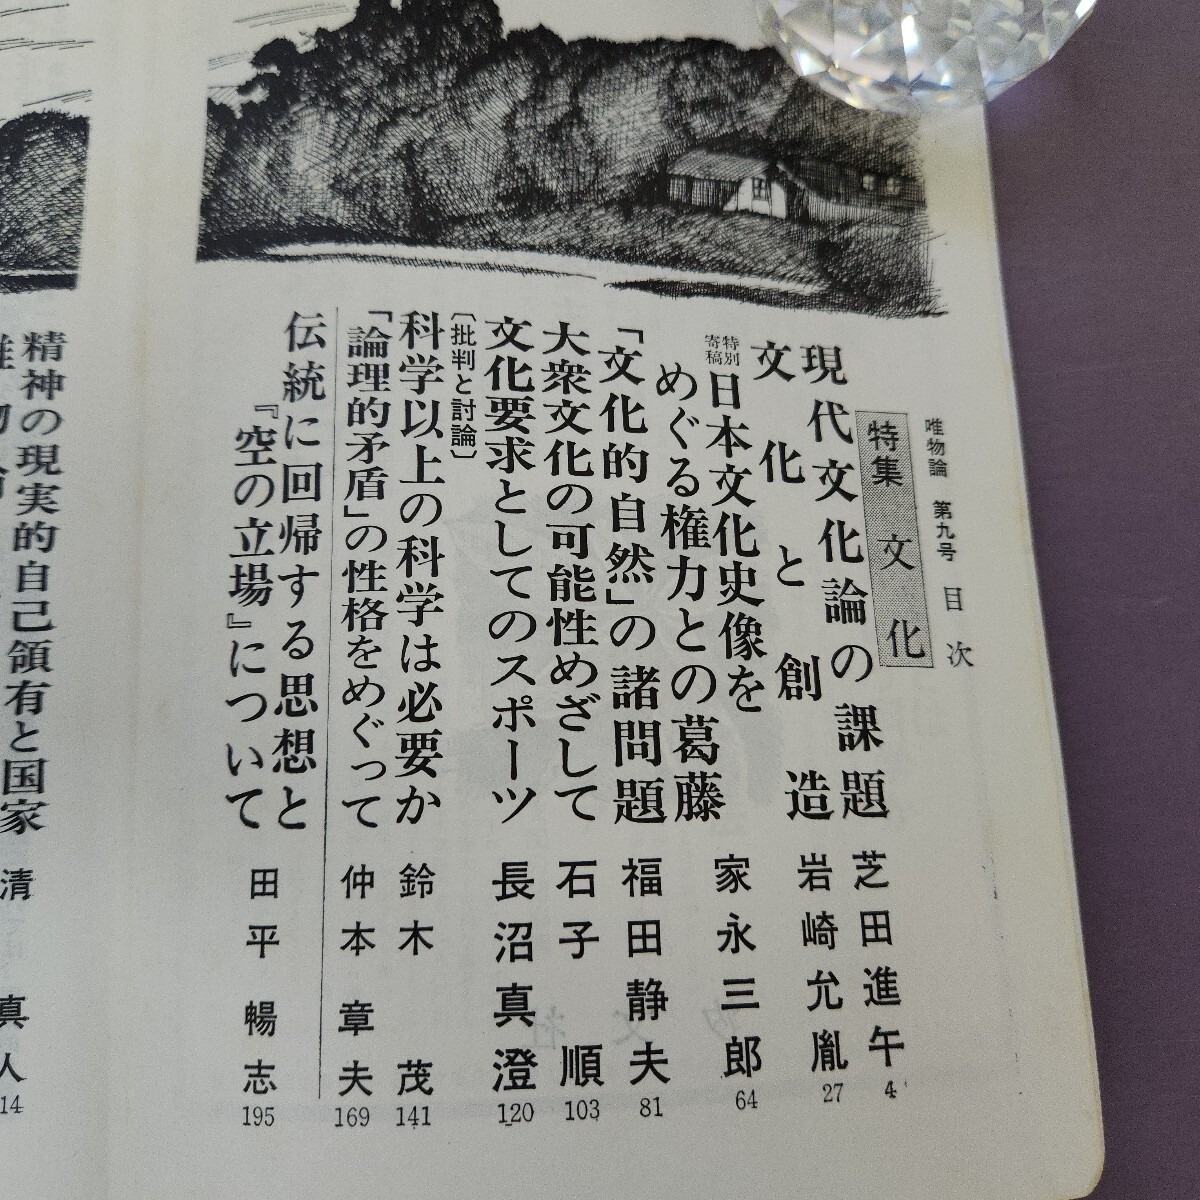 唯物論 第九号 目次
特集 文化
現代文化論の課題 芝田進午 4
文化と創造 岩崎允胤 27
特別寄稿
日本文化史像を
めぐる権力との葛藤 家永三郎 64
「文化的自然」の諸問題 福田静夫 81
大衆文化の可能性めざして 石子順 103
文化要求としてのスポーツ 長沼真澄 120
〔批判と討論〕
科学以上の科学は必要か 鈴木茂 141
「論理的矛盾」の性格をめぐって 仲本章夫 169
伝統に回帰する思想と
『空の立場』について 田平暢志 195
精神の現実的自己領有と国家 清 真人